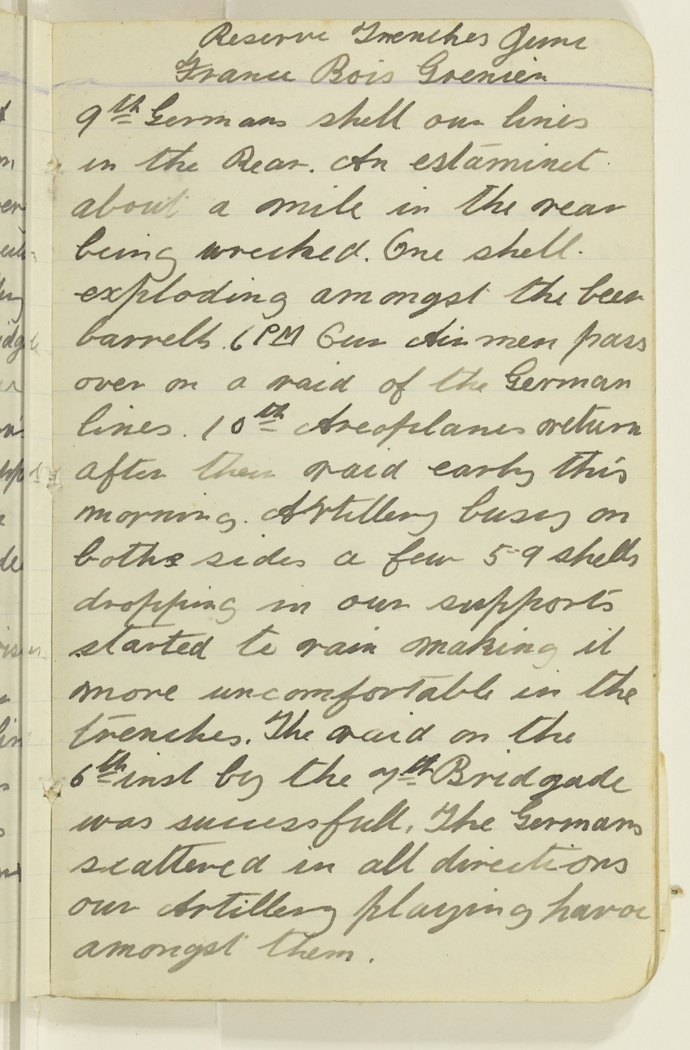 Reserve Trenches June
France Bois Grenier
9th Germans shell our lines
in the Rear. An estaminet
about a mile in the rear
being wrecked. One shell.
exploding amongst the beer
barrells. 6 PM Our Airmen pass
over on a raid of the German
lines. 10th Areoplanes return
after their raid early this
morning. Artillery busy on
boths sides a few 5-9 shells
dropping in our supports
started to rain making it
more uncomfortable in the
trenches. The raid on the
6th inst by the 7th Bridgade
was successfull. The Germans
scattered in all directions
our Artillery playing havoc
amongst them.